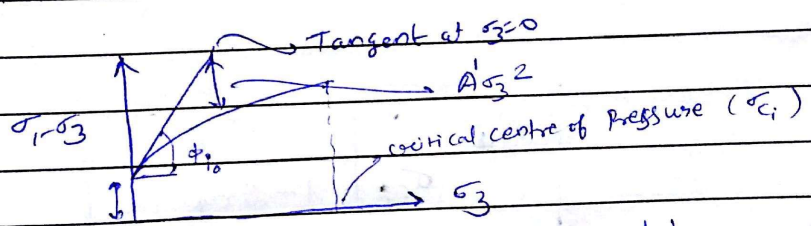 Tangent at σ3=0
A'σ3²
σ1-σ3
critical centre of Pressure (σci)
ϕio
σ3